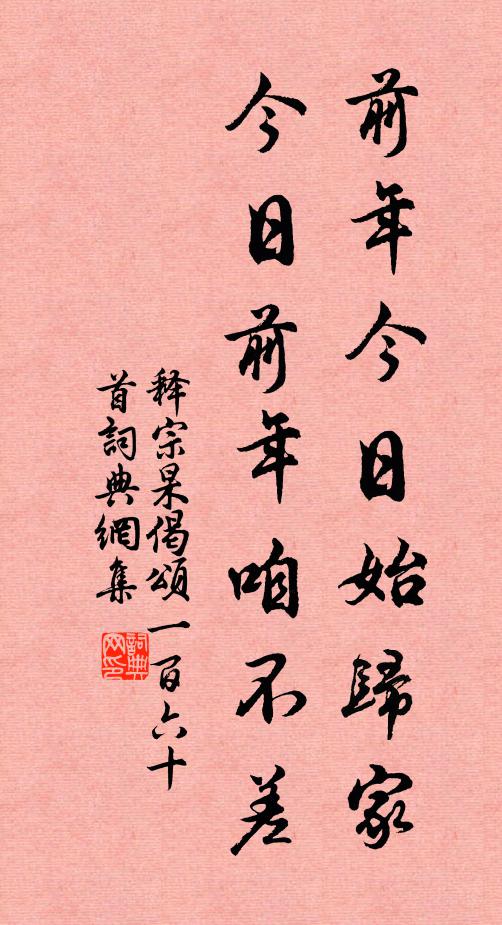 前年今日始歸家
今日前年咱不差
释宗杲偈頌一百六十
首詞典網集
詞典网印